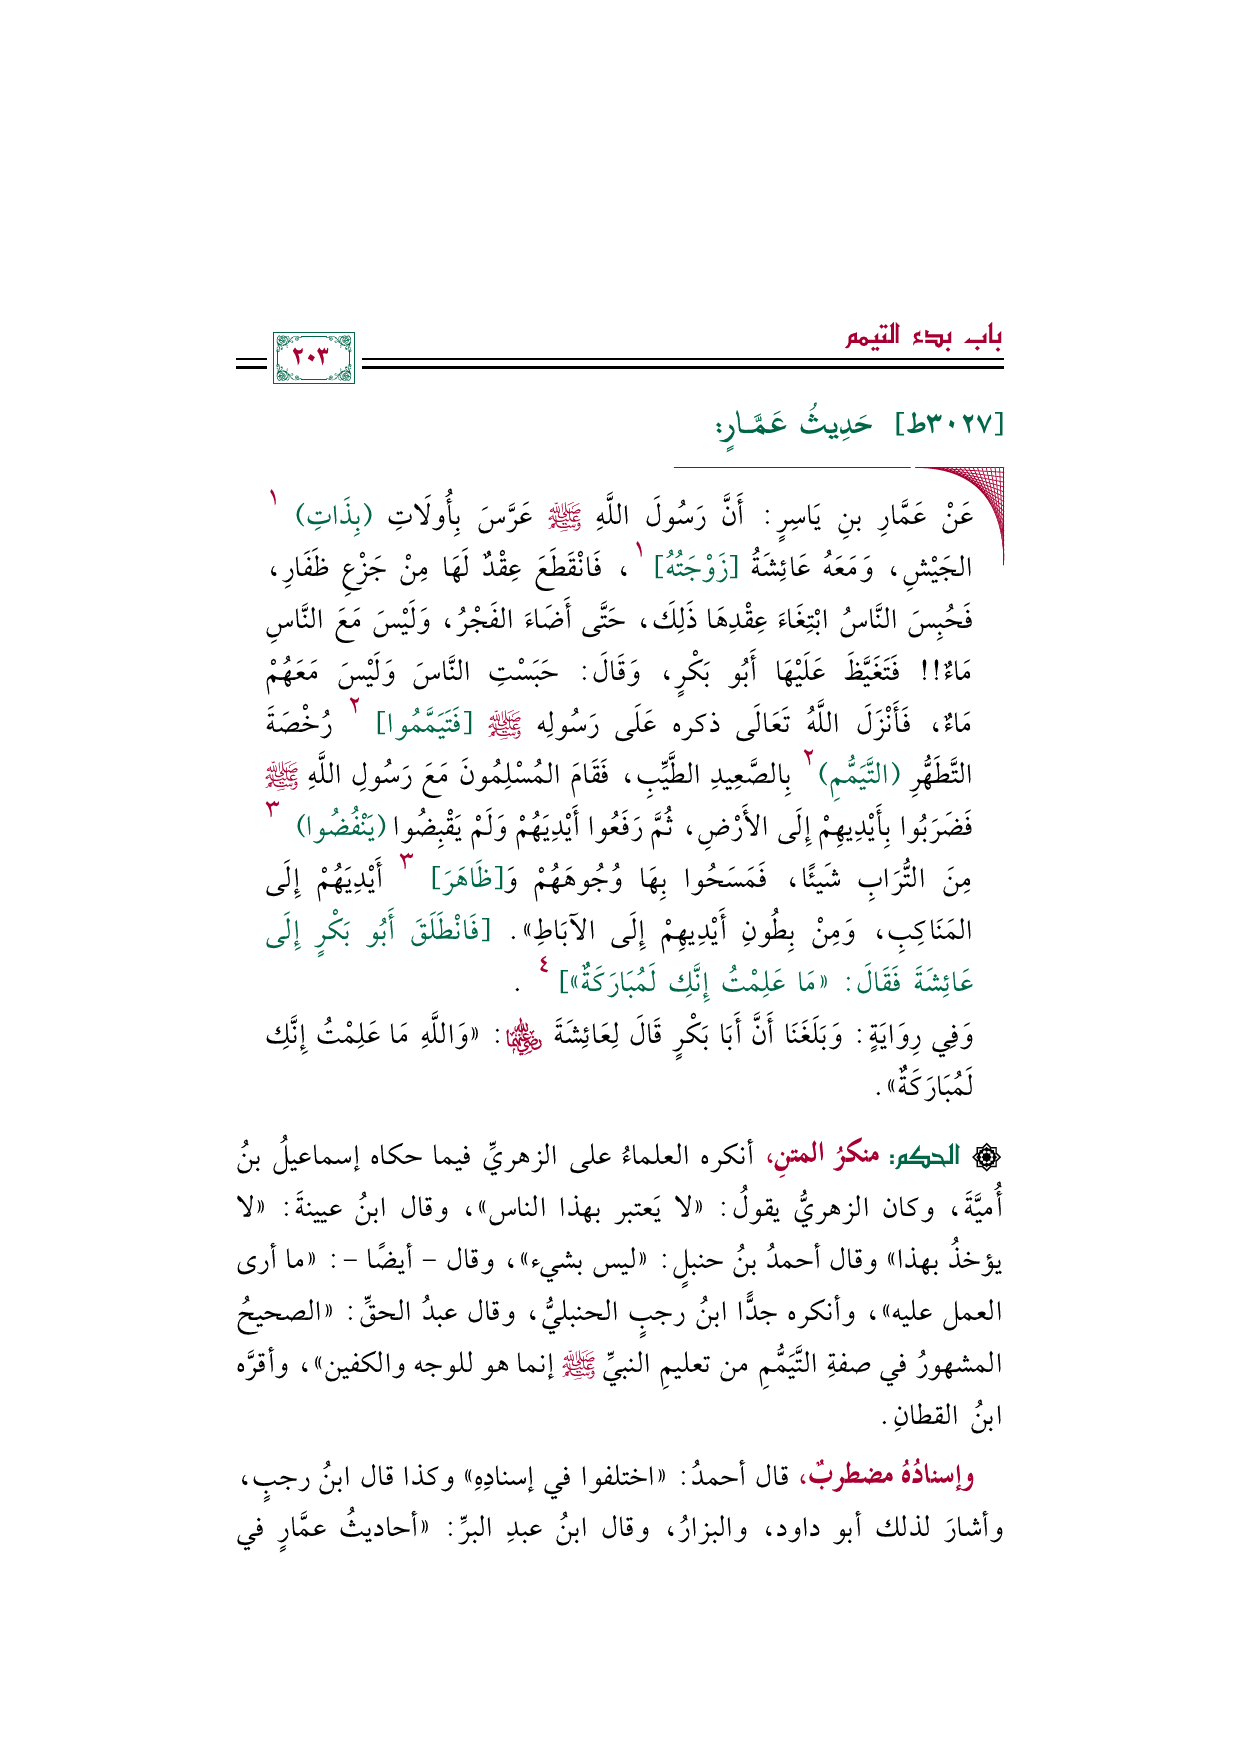 باب بدء التيمم
٢٠٣
[٣٠٢٧ط] حَدِيثُ عَمَّـارٍ:
عَنْ عَمَّارِ بنِ يَاسِرٍ: أَنَّ رَسُولَ اللَّهِ ﷺ عَرَّسَ بِأُولَاتِ (بِذَاتِ) ١
الجَيْشِ، وَمَعَهُ عَائِشَةُ [زَوْجَتُهُ] ١، فَانْقَطَعَ عِقْدٌ لَهَا مِنْ جَزْعِ ظَفَارِ،
فَحُبِسَ النَّاسُ ابْتِغَاءَ عِقْدِهَا ذَلِكَ، حَتَّى أَضَاءَ الفَجْرُ، وَلَيْسَ مَعَ النَّاسِ
مَاءٌ!! فَتَغَيَّظَ عَلَيْهَا أَبُو بَكْرٍ، وَقَالَ: حَبَسْتِ النَّاسَ وَلَيْسَ مَعَهُمْ
مَاءٌ، فَأَنْزَلَ اللَّهُ تَعَالَى ذكره عَلَى رَسُولِه ﷺ [فَتَيَمَّمُوا] ٢ رُخْصَةَ
التَّطَهُّرِ (التَّيَمُّمِ) ٢ بِالصَّعِيدِ الطَّيِّبِ، فَقَامَ المُسْلِمُونَ مَعَ رَسُولِ اللَّهِ ﷺ
فَضَرَبُوا بِأَيْدِيهِمْ إِلَى الأَرْضِ، ثُمَّ رَفَعُوا أَيْدِيَهُمْ وَلَمْ يَقْبِضُوا (يَنْفُضُوا) ٣
مِنَ التُّرَابِ شَيئًا، فَمَسَحُوا بِهَا وُجُوهَهُمْ وَ[ظَاهَرَ] ٣ أَيْدِيَهُمْ إِلَى
المَنَاكِبِ، وَمِنْ بِطُونِ أَيْدِيهِمْ إِلَى الآبَاطِ». [فَانْطَلَقَ أَبُو بَكْرٍ إِلَى
عَائِشَةَ فَقَالَ: «مَا عَلِمْتُ إِنَّكِ لَمُبَارَكَةٌ»] ٤.
وَفِي رِوَايَةٍ: وَبَلَغَنَا أَنَّ أَبَا بَكْرٍ قَالَ لِعَائِشَةَ رضي الله عنهما: «وَاللَّهِ مَا عَلِمْتُ إِنَّكِ
لَمُبَارَكَةٌ».
الحكم: منكرُ المتنِ، أنكره العلماءُ على الزهريِّ فيما حكاه إسماعيلُ بنُ
أُميَّةَ، وكان الزهريُّ يقولُ: «لا يَعتبر بهذا الناس»، وقال ابنُ عيينةَ: «لا
يؤخذُ بهذا» وقال أحمدُ بنُ حنبلٍ: «ليس بشيء»، وقال – أيضًا –: «ما أرى
العمل عليه»، وأنكره جدًّا ابنُ رجبٍ الحنبليُّ، وقال عبدُ الحقِّ: «الصحيحُ
المشهورُ في صفةِ التَّيَمُّمِ من تعليمِ النبيِّ ﷺ إنما هو للوجه والكفين»، وأقرَّه
ابنُ القطانِ.
وإسنادُهُ مضطربٌ، قال أحمدُ: «اختلفوا في إسنادِهِ» وكذا قال ابنُ رجبٍ،
وأشارَ لذلك أبو داود، والبزارُ، وقال ابنُ عبدِ البرِّ: «أحاديثُ عمَّارٍ في